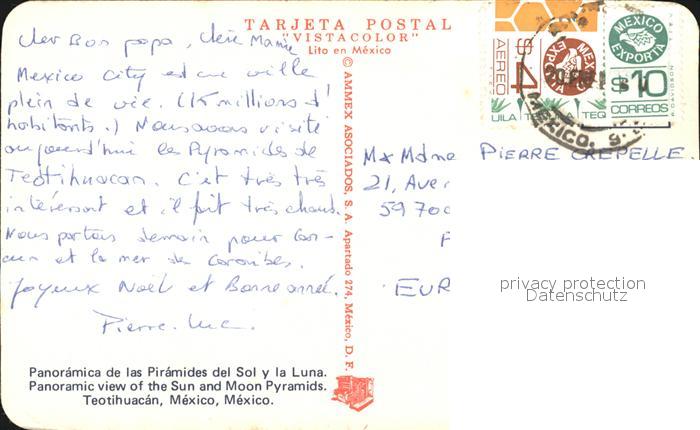 TARJETA POSTAL
"VISTACOLOR"
Lito en México
Cher Bon papa, Chère Mamie
Mexico City est une ville
plein de vie. (15 millions d'
habitants.) Nous avons visité
aujourd'hui les Pyramides de
Teotihuacan. C'est très très
intéressant et il fait très chaud.
Nous partons demain pour Can-
cun et la mer des Caraïbes.
Joyeux Noël et Bonne année.
Pierre-Luc.
Panorámica de las Pirámides del Sol y la Luna.
Panoramic view of the Sun and Moon Pyramids.
Teotihuacán, México, México.
© AMMEX ASOCIADOS, S. A. Apartado 274, México, D. F.
$4
AEREO
MEXICO
EXPORTA
TEQ
UILA
MEXICO
EXPORTA
$10
CORREOS
MEXICO,
Mx Mdme PIERRE CREPELLE.
21, Aver
59700
F
EUR
privacy protection
Datenschutz